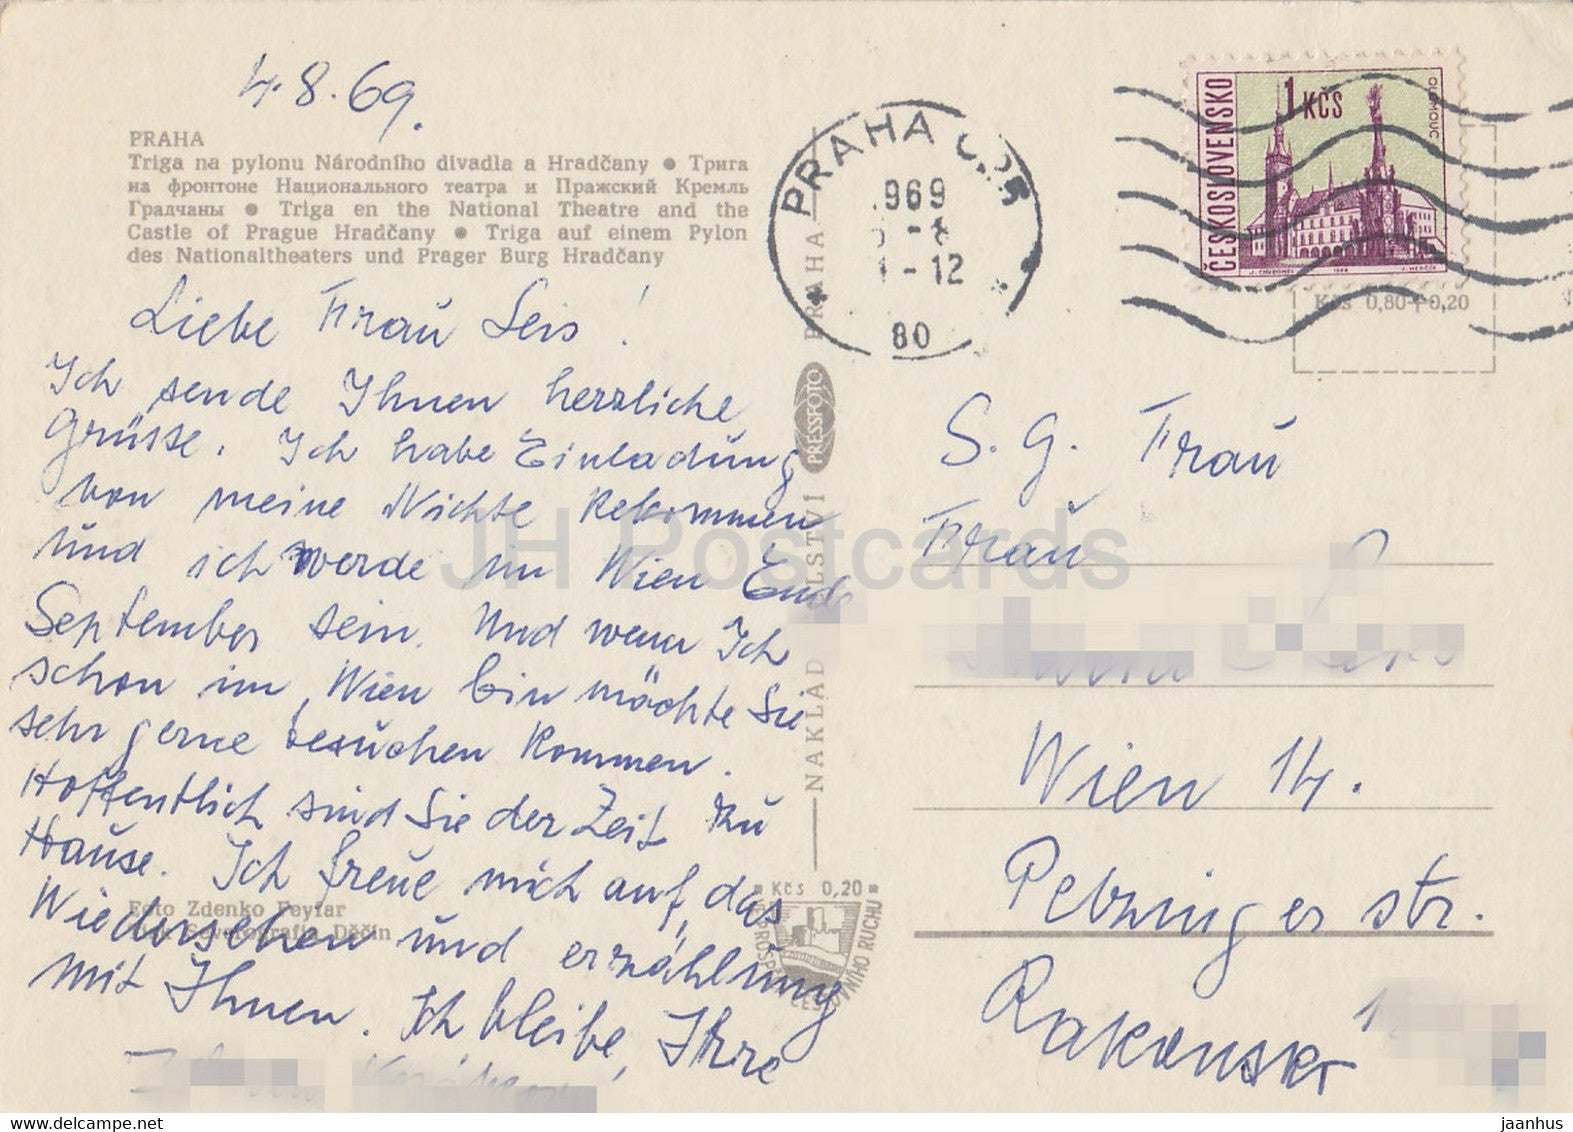 4.8.69.
PRAHA
Triga na pylonu Národního divadla a Hradčany ● Трига
на фронтоне Национального театра и Пражский Кремль
Градчаны ● Triga en the National Theatre and the
Castle of Prague Hradčany ● Triga auf einem Pylon
des Nationaltheaters und Prager Burg Hradčany
Liebe Frau Seis!
Ich sende Ihnen herzliche
Grüsse. Ich habe Einladung
von meine Nichte bekommen
und ich werde in Wien Ende
September sein. Und wenn Ich
schon in Wien bin möchte Sie
sehr gerne besuchen kommen.
Hoffentlich sind Sie der Zeit zu
Hause. Ich freue mich auf das
Wiedersehen und erzählung
mit Ihnen. Ich bleibe, Ihre
Foto Zdenko Feyfar
Severografia Děčín
NAKLAD PRESSFOTO PRAHA
Kčs 0,20
PRAHA
969
-12
80
ČESKOSLOVENSKO
1 KČS
OLOMOUC
Kčs 0,80+0,20
S. G. Frau
Frau
Wien 14.
Petzninger str.
Rakousko
JH Postcards
delcampe.net
jaanhus